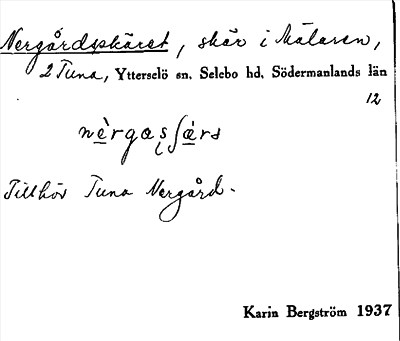 Nergårdsskäret, skär i Mälaren,
2 Tuna, Ytterselö sn. Selebo hd. Södermanlands län
12
Tillhör Tuna Nergård.
Karin Bergström 1937